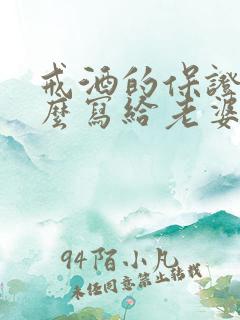 戒酒的保證
麼寫給老婆
94陌小凡
未经同意禁止转载